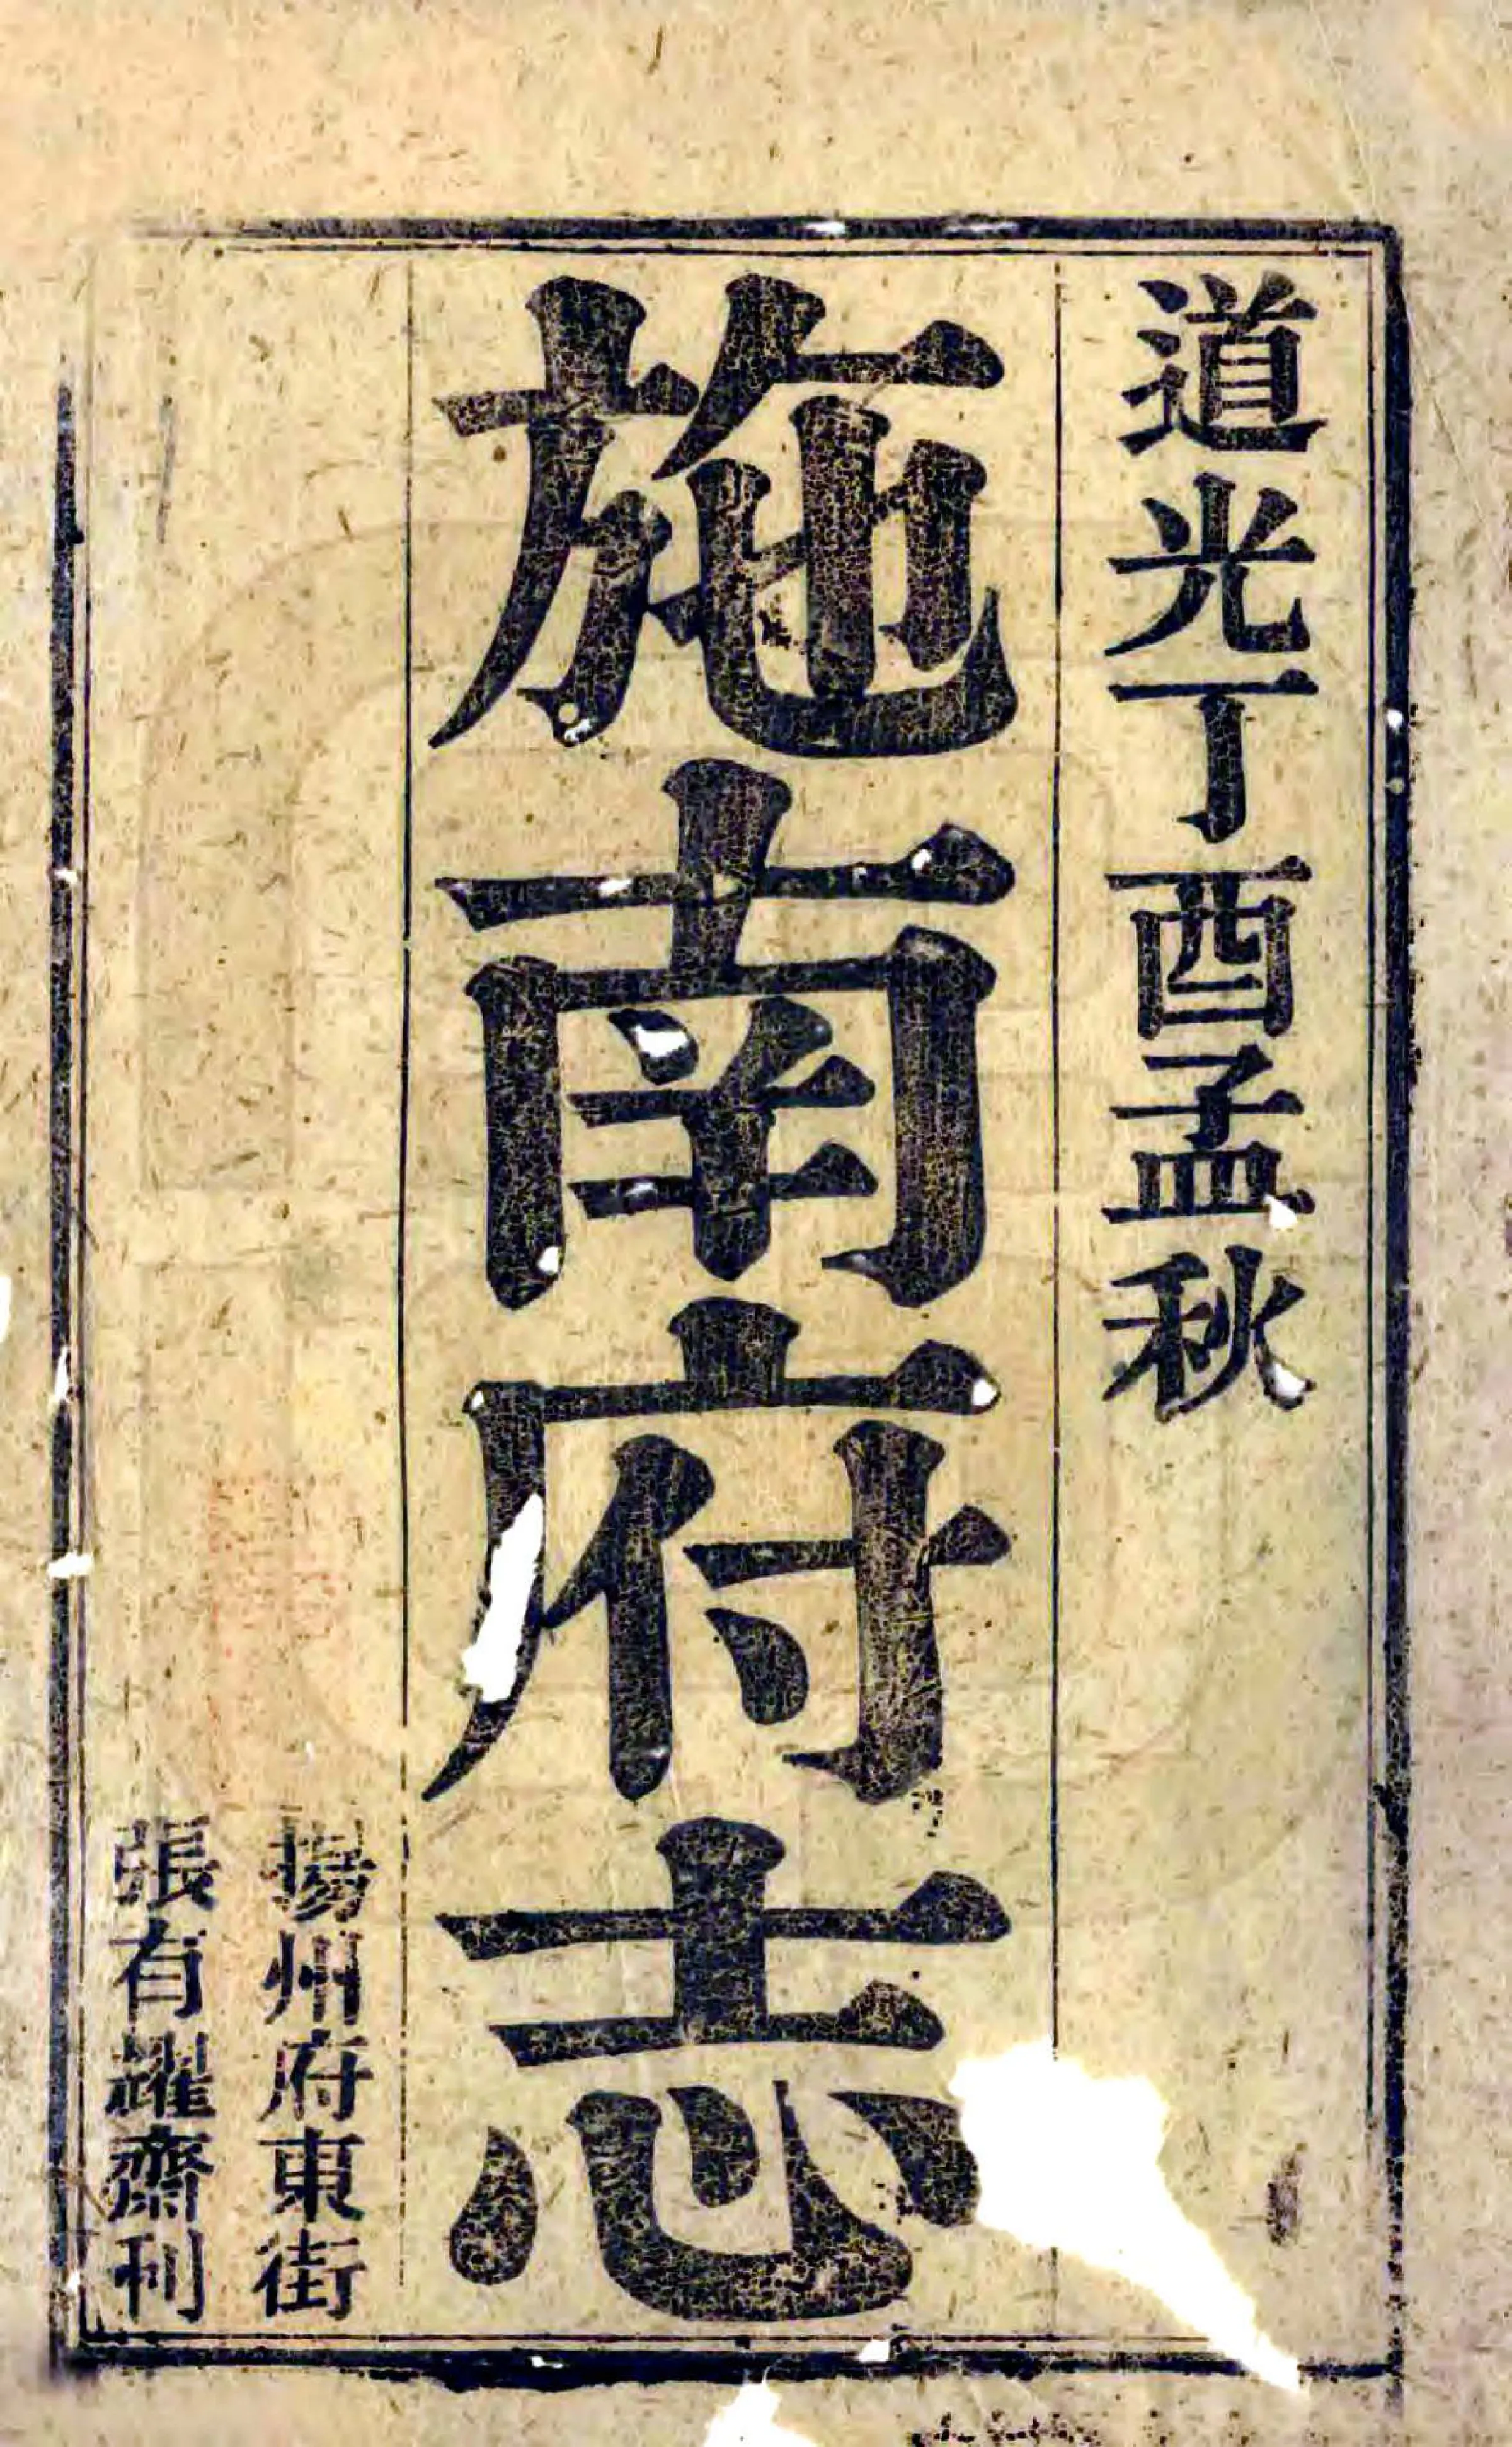 道光丁酉孟秋
施南府志
揚州府東街
張有耀齋刊